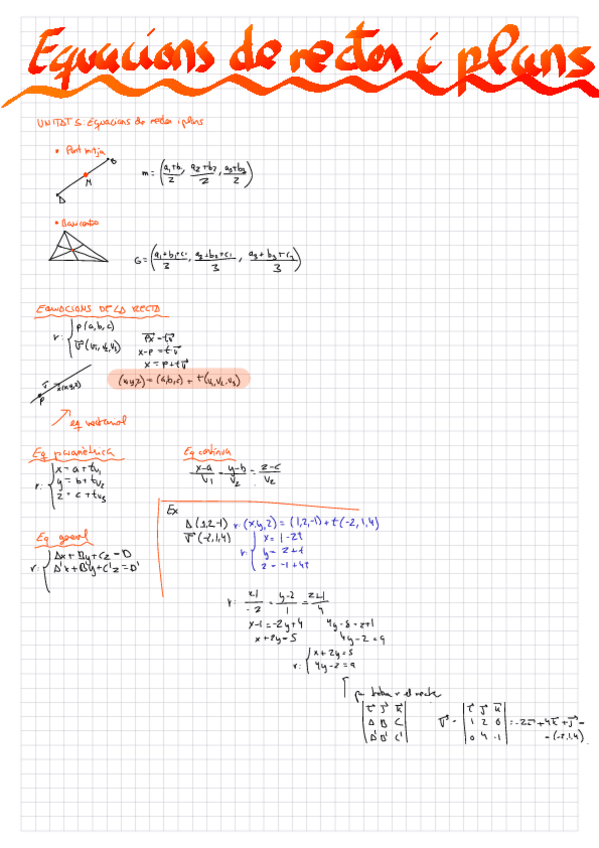 Equacions de rectes i plans
UNITAT 5: Equacions de rectes i plans
• Punt mitjà
B
M
A
m = (a₁+b₁/2, a₂+b₂/2, a₃+b₃/2)
• Baricentre
G = (a₁+b₁+c₁/3, a₂+b₂+c₂/3, a₃+b₃+c₃/3)
EQUACIONS DE LA RECTA
r: { P(a,b,c)
v⃗(v₁,v₂,v₃)
PX⃗ = t·v⃗
x-p = t·v⃗
x = p+t·v⃗
(x,y,z) = (a,b,c) + t(v₁,v₂,v₃)
v⃗
x(x,y,z)
P
eq vectorial
Eq paramètrica
r: { x = a+tv₁
y = b+tv₂
z = c+tv₃
Eq contínua
x-a/v₁ = y-b/v₂ = z-c/v₂
Eq general
r: { Ax+By+Cz=D
A'x+B'y+C'z=D'
Ex
A (1,2,-1) r: (x,y,z) = (1,2,-1) + t(-2,1,4)
v⃗ (-2,1,4)
r: { x = 1-2t
y = 2+t
z = -1+4t
r: x-1/-2 = y-2/1 = z+1/4
x-1=-2y+4 4y-8=z+1
x+2y=5 4y-z=9
r: { x+2y=5
4y-z=9
| i⃗ j⃗ k⃗ |
| A B C |
| A' B' C' |
v⃗ = | i⃗ j⃗ k⃗ |
| 1 2 0 |
| 0 4 -1 |
= -2i⃗+4k⃗+j⃗ =
= (-2,1,4)